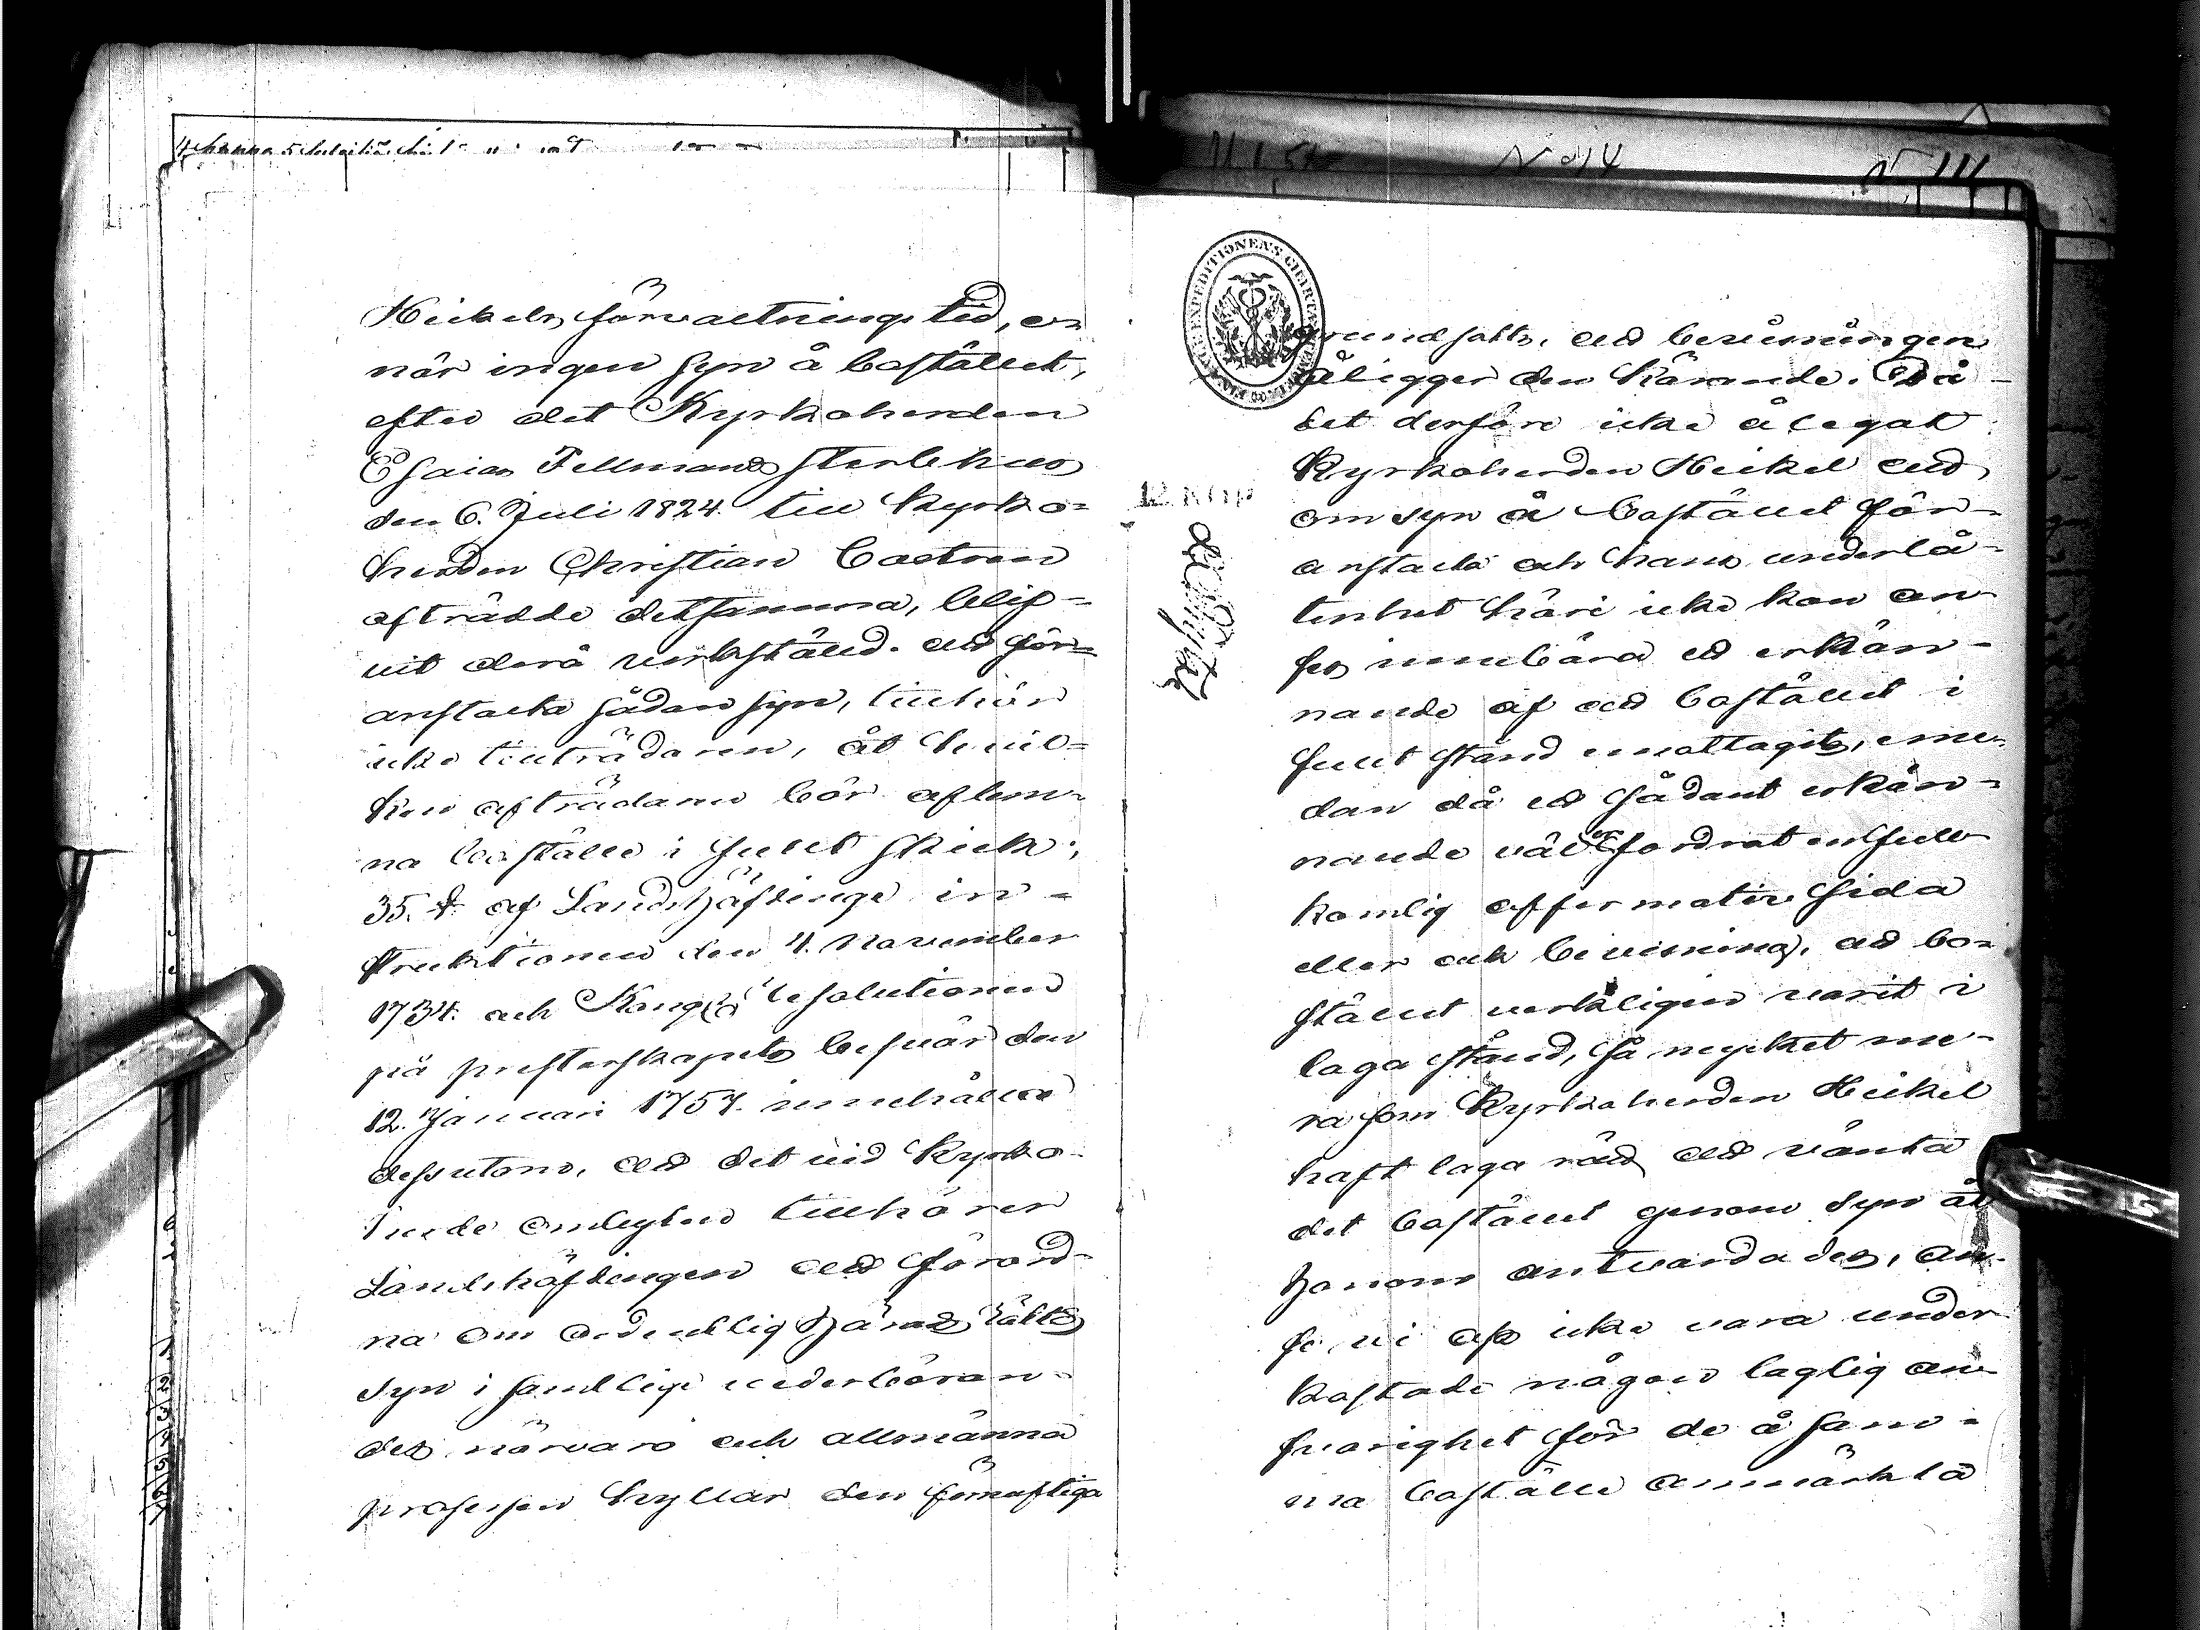 Heickels förvaltnings tid, e-
när ingen syn å bostället,
efter det Kyrkoherden
Esaias Fellmans sterbhus
den 6. Juli 1824 till Kyrko-
herden Christian Castren
afträdde detsamma, blif-
vit derå verkställd. att för-
anstalta sådan syn, tillhör
icke tillträdaren, åt hvil-
ken afträdaren bör aflem-
na boställe i fullt skick;
35. § af Landshöfdinge in-
struktionen den 4. November
1734. och Kongl. Resolutionen
på presterskapets besvär den
12. Januari 1757. innehålla
dessutom, att det vid Kyrko-
herde ombyten tillhörer
Landshöfdingen att förord-
na om ordentlig Härads Rätts
syn i samtlige vederböran-
des närvaro och allmänna
processen hyllar den förnuftiga
N 14
N 111
EXPEDITIONENS
12 KOP
grundsatts, att bevisningen
åligger den Kärande. Då
det derföre icke ålegat
Kyrkoherden Heickel att
om syn å bostället för-
anstalta och hans underlå-
tenhet häri icke kan an-
ses innebära ett erkän-
nande af att bostället i
fullt stånd emottagits, eme-
dan då ett sådant erkän-
nande väl fordrat en full-
komlig affermativ sida
eller ock bevisning, att bo-
stället verkeligen varit i
laga stånd, så mycket me-
ra som Kyrkoherden Heickel
haft laga råd att vänta
det bostället genom syn åt
honom antvardades, an-
se vi oss icke vara under
kastade någon laglig an-
svarighet för de å sam-
ma boställe anmärkta